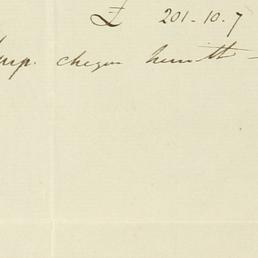 £ 201-10.7
cheque herewith -